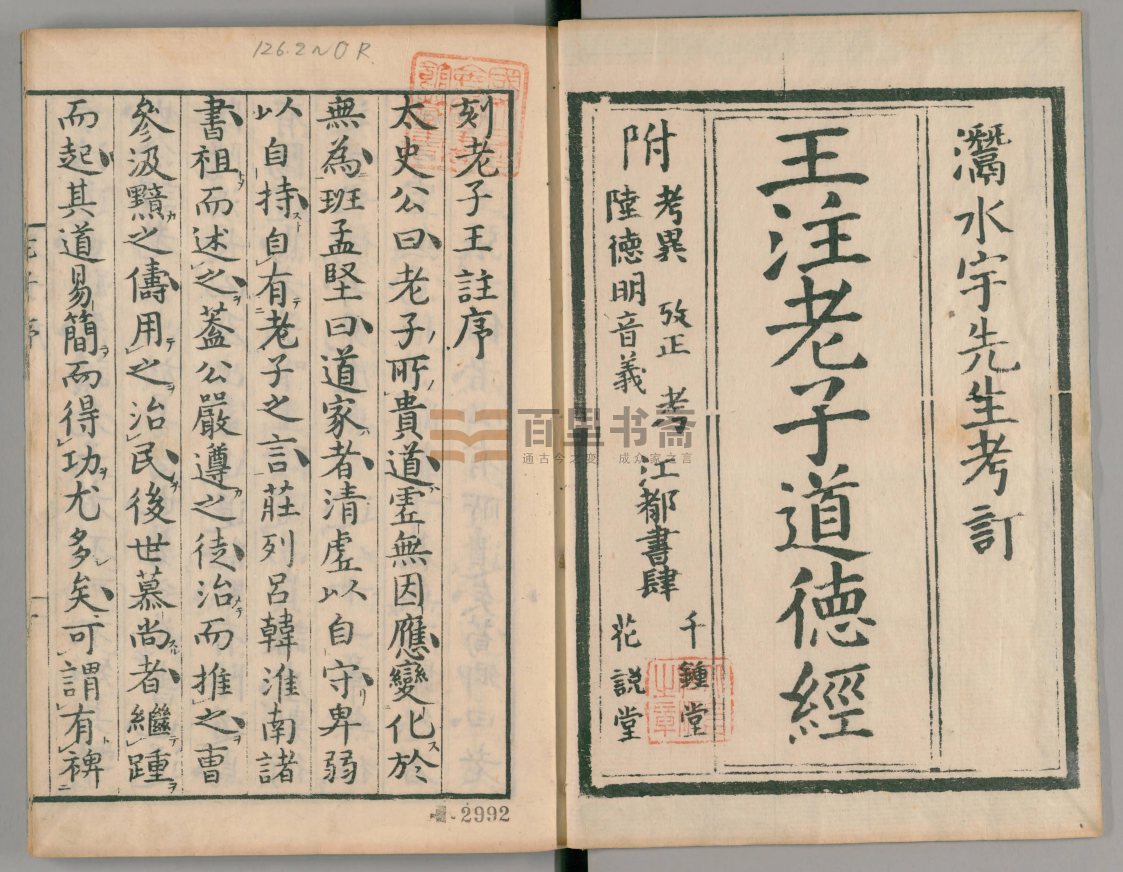 灊水宇先生考訂
王注老子道德經
附 考異 攷正 考
陸德明音義
江都書肆 千鍾堂
花説堂
126.2~OR.
刻老子王註序
太史公曰老子所貴道虛無因應變化於
無為班孟堅曰道家者清虛以自守卑弱
以自持自有老子之言莊列呂韓淮南諸
書祖而述之蓋公嚴遵之徒治而推之曹
參汲黯之儔用之治民後世慕尚者繼踵
而起其道易簡而得功尤多矣可謂有裨
2992
百里书斋
通古今之变 成众家之言